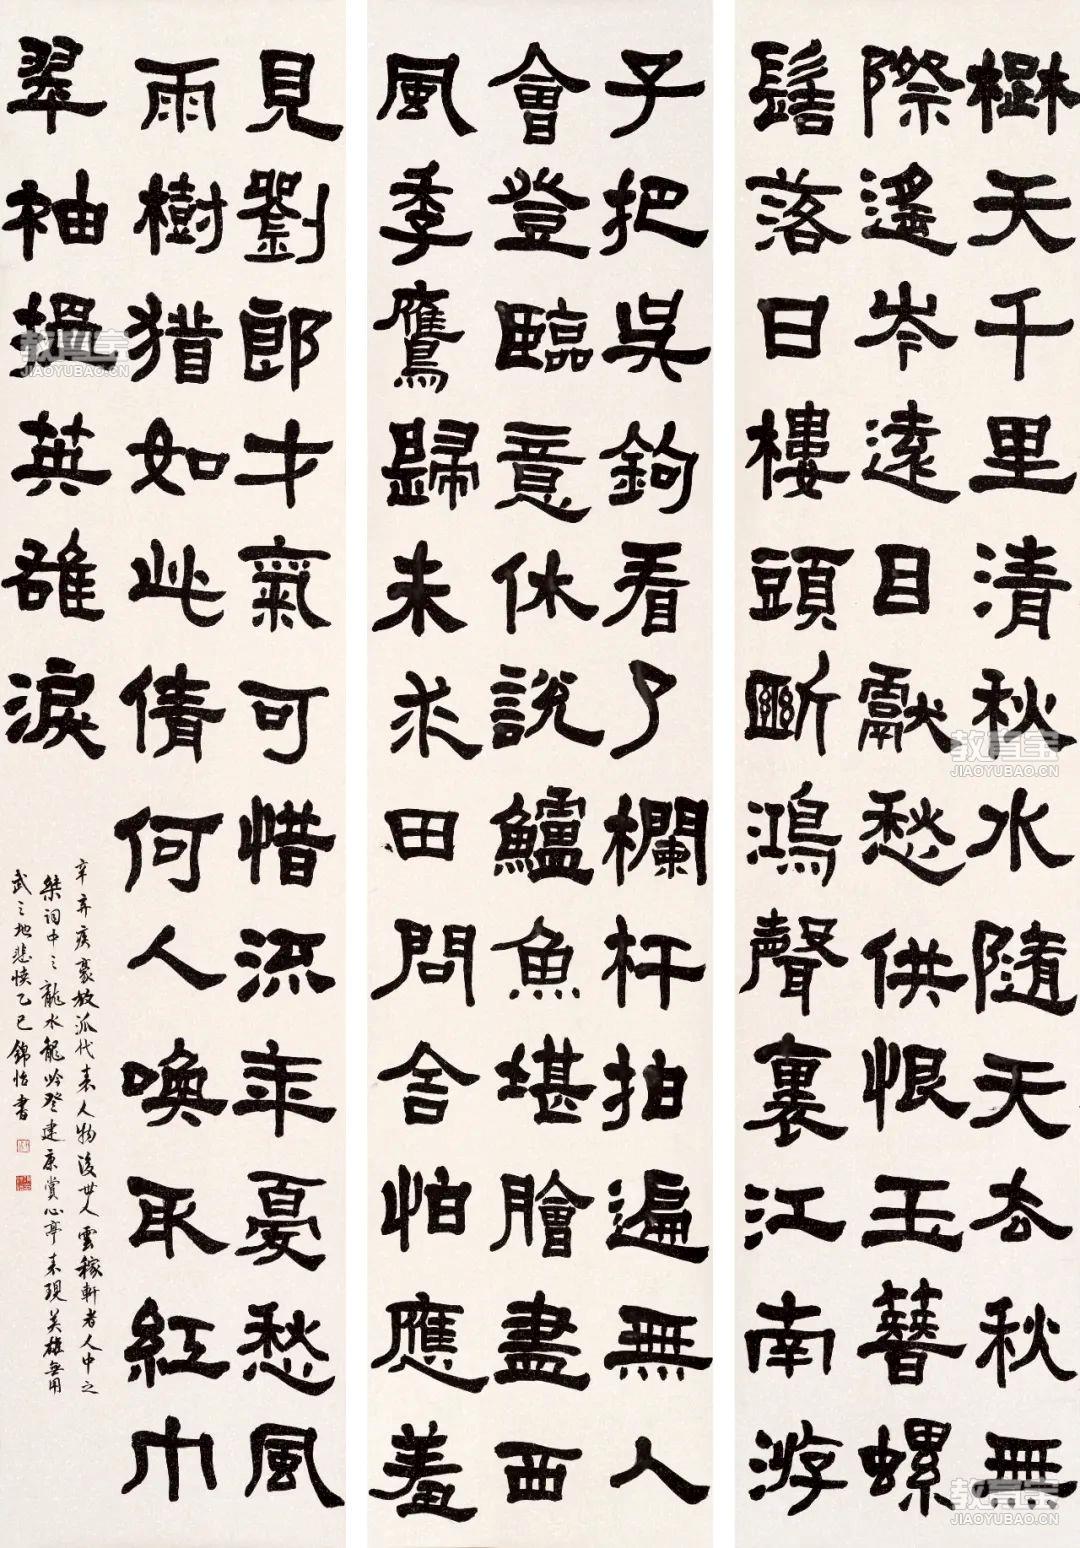 楚天千里清秋水隨天去秋無
際遙岑遠目獻愁供恨玉簪螺
髻落日樓頭斷鴻聲裏江南游
子把吳鉤看了欄杆拍遍無人
會登臨意休說鱸魚堪膾盡西
風季鷹歸未求田問舍怕應羞
見劉郎才氣可惜流年憂愁風
雨樹猶如此倩何人喚取紅巾
翠袖揾英雄淚
辛弃疾豪放派代表人物後世人雲稼軒者人中之
桀詞中之龍水龍吟登建康賞心亭来現英雄無用
武之地悲憤乙巳錦怡書
教育宝
JIAOYUBAO.CN
教育宝
JIAOYUBAO.CN
教育宝
JIAOYUBAO.CN